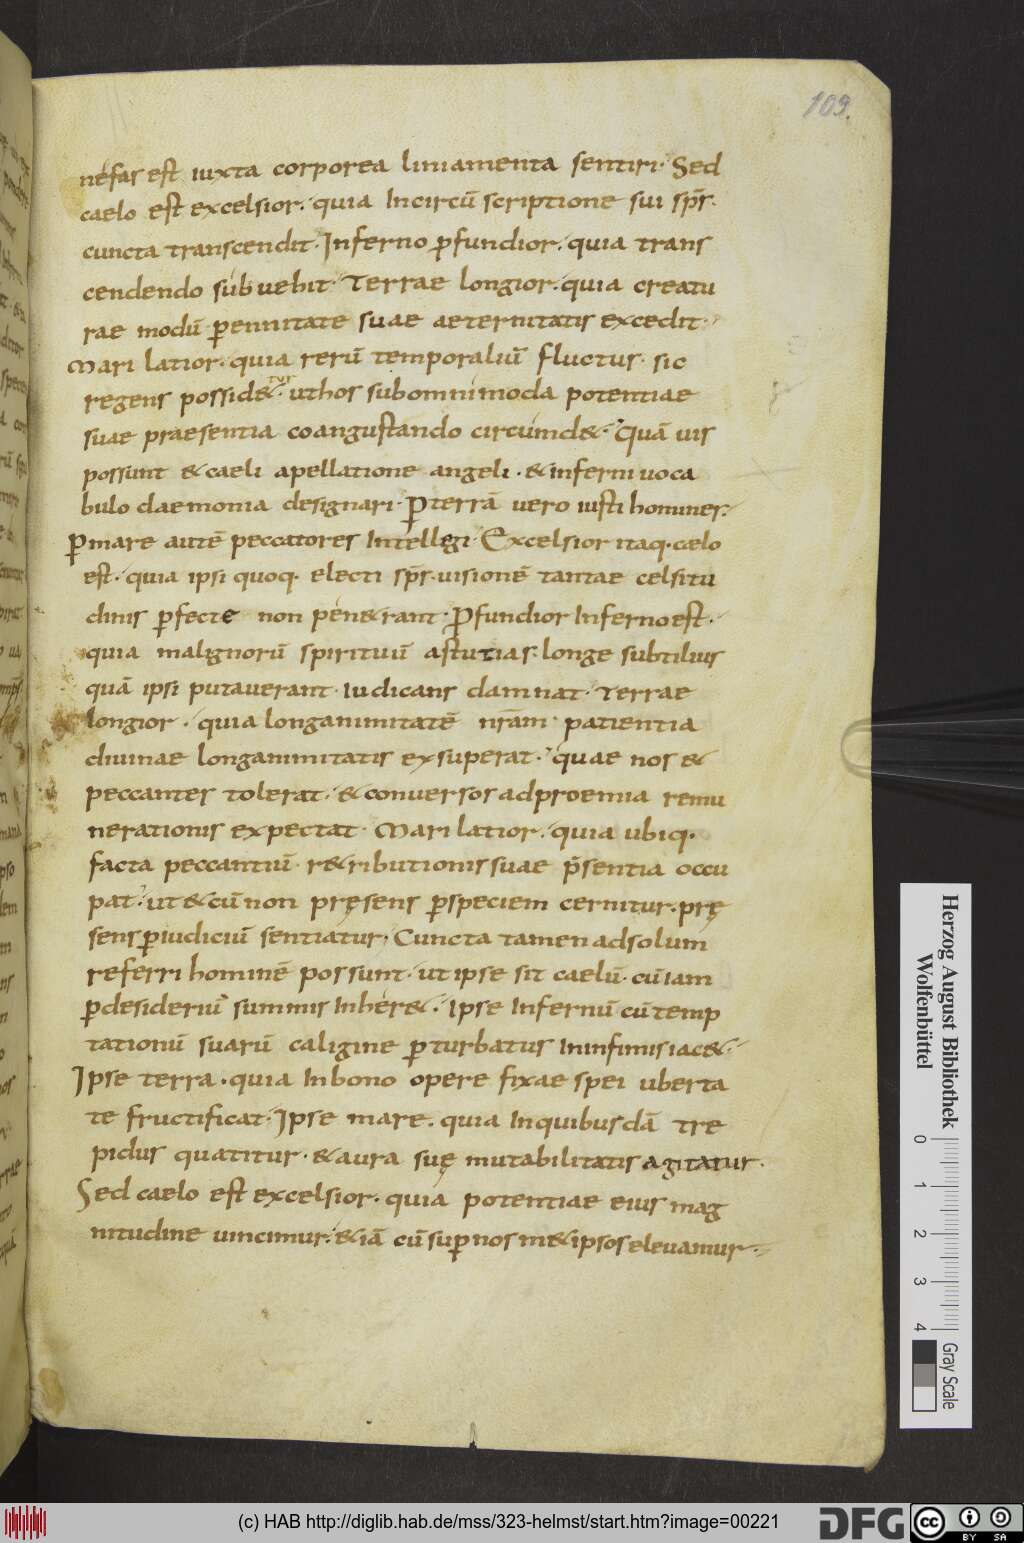 109.
nefas est iuxta corporea liniamenta sentiri· Sed
caelo est excelsior· quia Incircū scriptione sui spr̄s·
cuncta transcendit· Inferno ꝓfundior· quia trans
cendendo subuehit· Terrae longior· quia creatu
rae modū ꝑennitate suae aeternitatis excedit·
Mari latior· quia rerū temporaliū fluctus· sic
regens possid&· ut hos sub omnimoda potentiae
suae praesentia coangustando circumd&· Quā uis
possunt & caeli apellatione angeli· & inferni uoca
bulo daemonia designari· ꝑ terrā uero iusti homines·
ꝑ mare autē peccatores Intellegi· Excelsior itaq· caelo
est· quia ipsi quoq· electi spr̄s· uisionē tantae celsitu
dinis ꝑfecte non pen&rant· ꝓfundior Inferno est·
quia malignorū spirituū astutias· longe subtilius
quā ipsi putauerant· Iudicans damnat· Terrae
longior· quia longanimitatē nr̄am· patientia
diuinae longanimitatis exsuperat· quae nos &
peccantes tolerat· & conuersos ad proemia remu
nerationis expectat· Mari latior· quia ubiq·
facta peccantiū r&ributionis suae p̄sentia occu
pat· ut & cū non pręsens ꝑ speciem cernitur· prę
sens ꝑ iudiciū sentiatur· Cuncta tamen ad solum
referri hominē possunt· ut ipse sit caelū· cū iam
ꝑ desideriū summis Inher&· Ipse Infernū cū temp
tationū suarū caligine ꝑturbatus In infimis iac&·
Ipse terra· quia In bono opere fixae spei uberta
te fructificat· Ipse mare· quia In quibusdā tre
pidus quatitur· & aura suę mutabilitatis agitatur·
Sed caelo est excelsior· quia potentiae eius mag
nitudine uincimur· & iā cū super nosm& ipsos eleuamur·
Herzog August Bibliothek
Wolfenbüttel
0 1 2 3 4
Gray Scale
(c) HAB http://diglib.hab.de/mss/323-helmst/start.htm?image=00221
DFG
cc BY SA